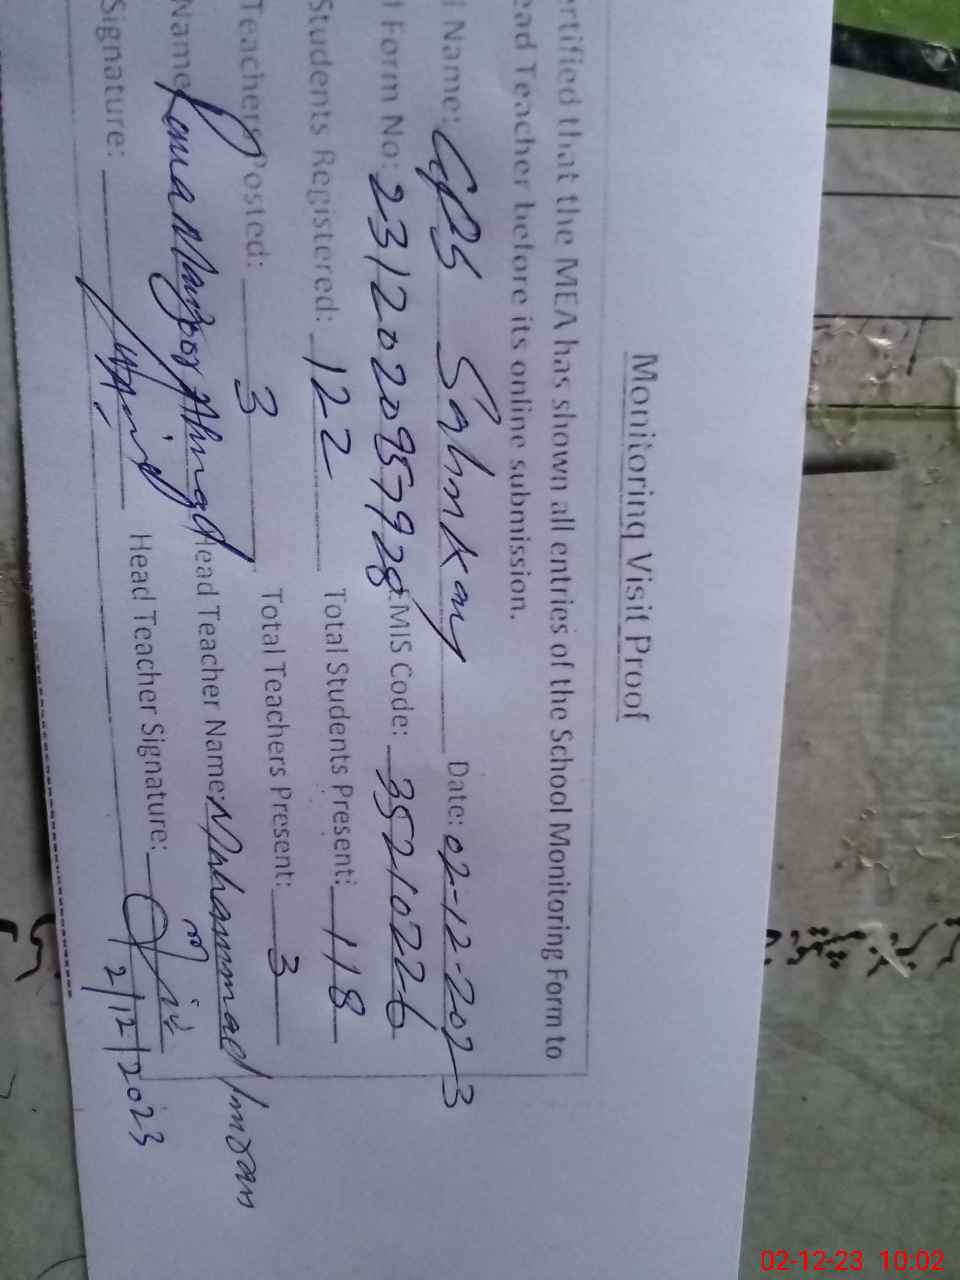 Monitoring Visit Proof
ertified that the MEA has shown all entries of the School Monitoring Form to
ead Teacher before its online submission.
l Name: GPS Sahnkay Date: 02-12-2023
l Form No: 2312020957928 EMIS Code: 35210226
Students Registered: 122 Total Students Present: 118
Teachers Posted: 3 Total Teachers Present: 3
Name: Rana Manzoor Ahmad Head Teacher Name: Muhammad Imran
Signature: Head Teacher Signature:
2/12/2023
02-12-23 10:02